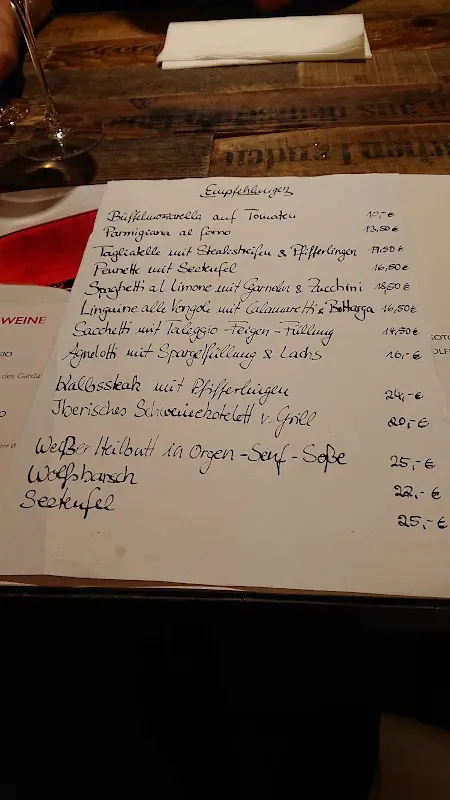 Empfehlungen
Büffelmozzarella auf Tomaten 10,-€
Parmigiana al forno 13,50€
Tagliatelle mit Steakstreifen & Pfifferlingen 17,50€
Pennette mit Seeteufel 16,50€
Spaghetti al Limone mit Garneln & Zucchini 18,50€
Linguine alle Vongole mit Calamaretti & Bottarga 16,50€
Sacchetti mit Taleggio-Feigen-Füllung 14,50€
Agnelotti mit Spargelfüllung & Lachs 16,-€
Kalbssteak mit Pfifferlingen 24,-€
Iberisches Schweinekotelett v. Grill 20,-€
Weißer Heilbutt in Orgen-Senf-Soße 25,-€
Wolfsbarsch 22,-€
Seeteufel 25,-€
WEINE
des Garda